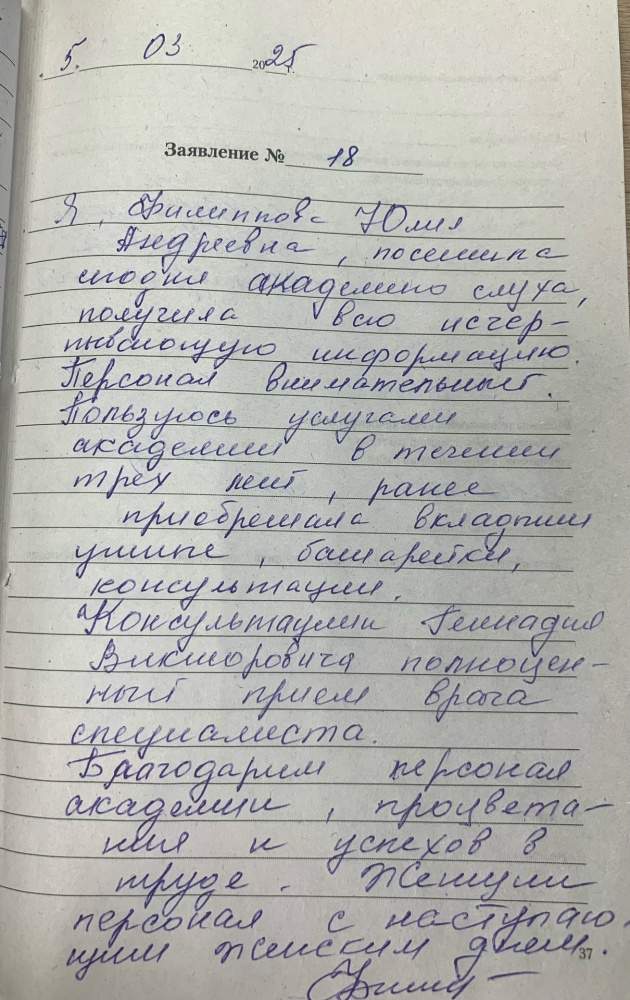 5. 03 2025
Заявление № 18
Я, Филиппова Юлия
Андреевна, посетила
сегодня академию слуха,
получила всю исчер-
пывающую информацию.
Персонал внимательный.
Пользуюсь услугами
академии в течении
трех лет, ранее
приобретала вкладыши
ушные, батарейки,
консультации.
Консультации Геннадия
Викторовича полноцен-
ный прием врача
специалиста.
Благодарим персонал
академии, процвета-
ния и успехов в
труде. Женщин
персонал с наступаю-
щим женским днем.
37